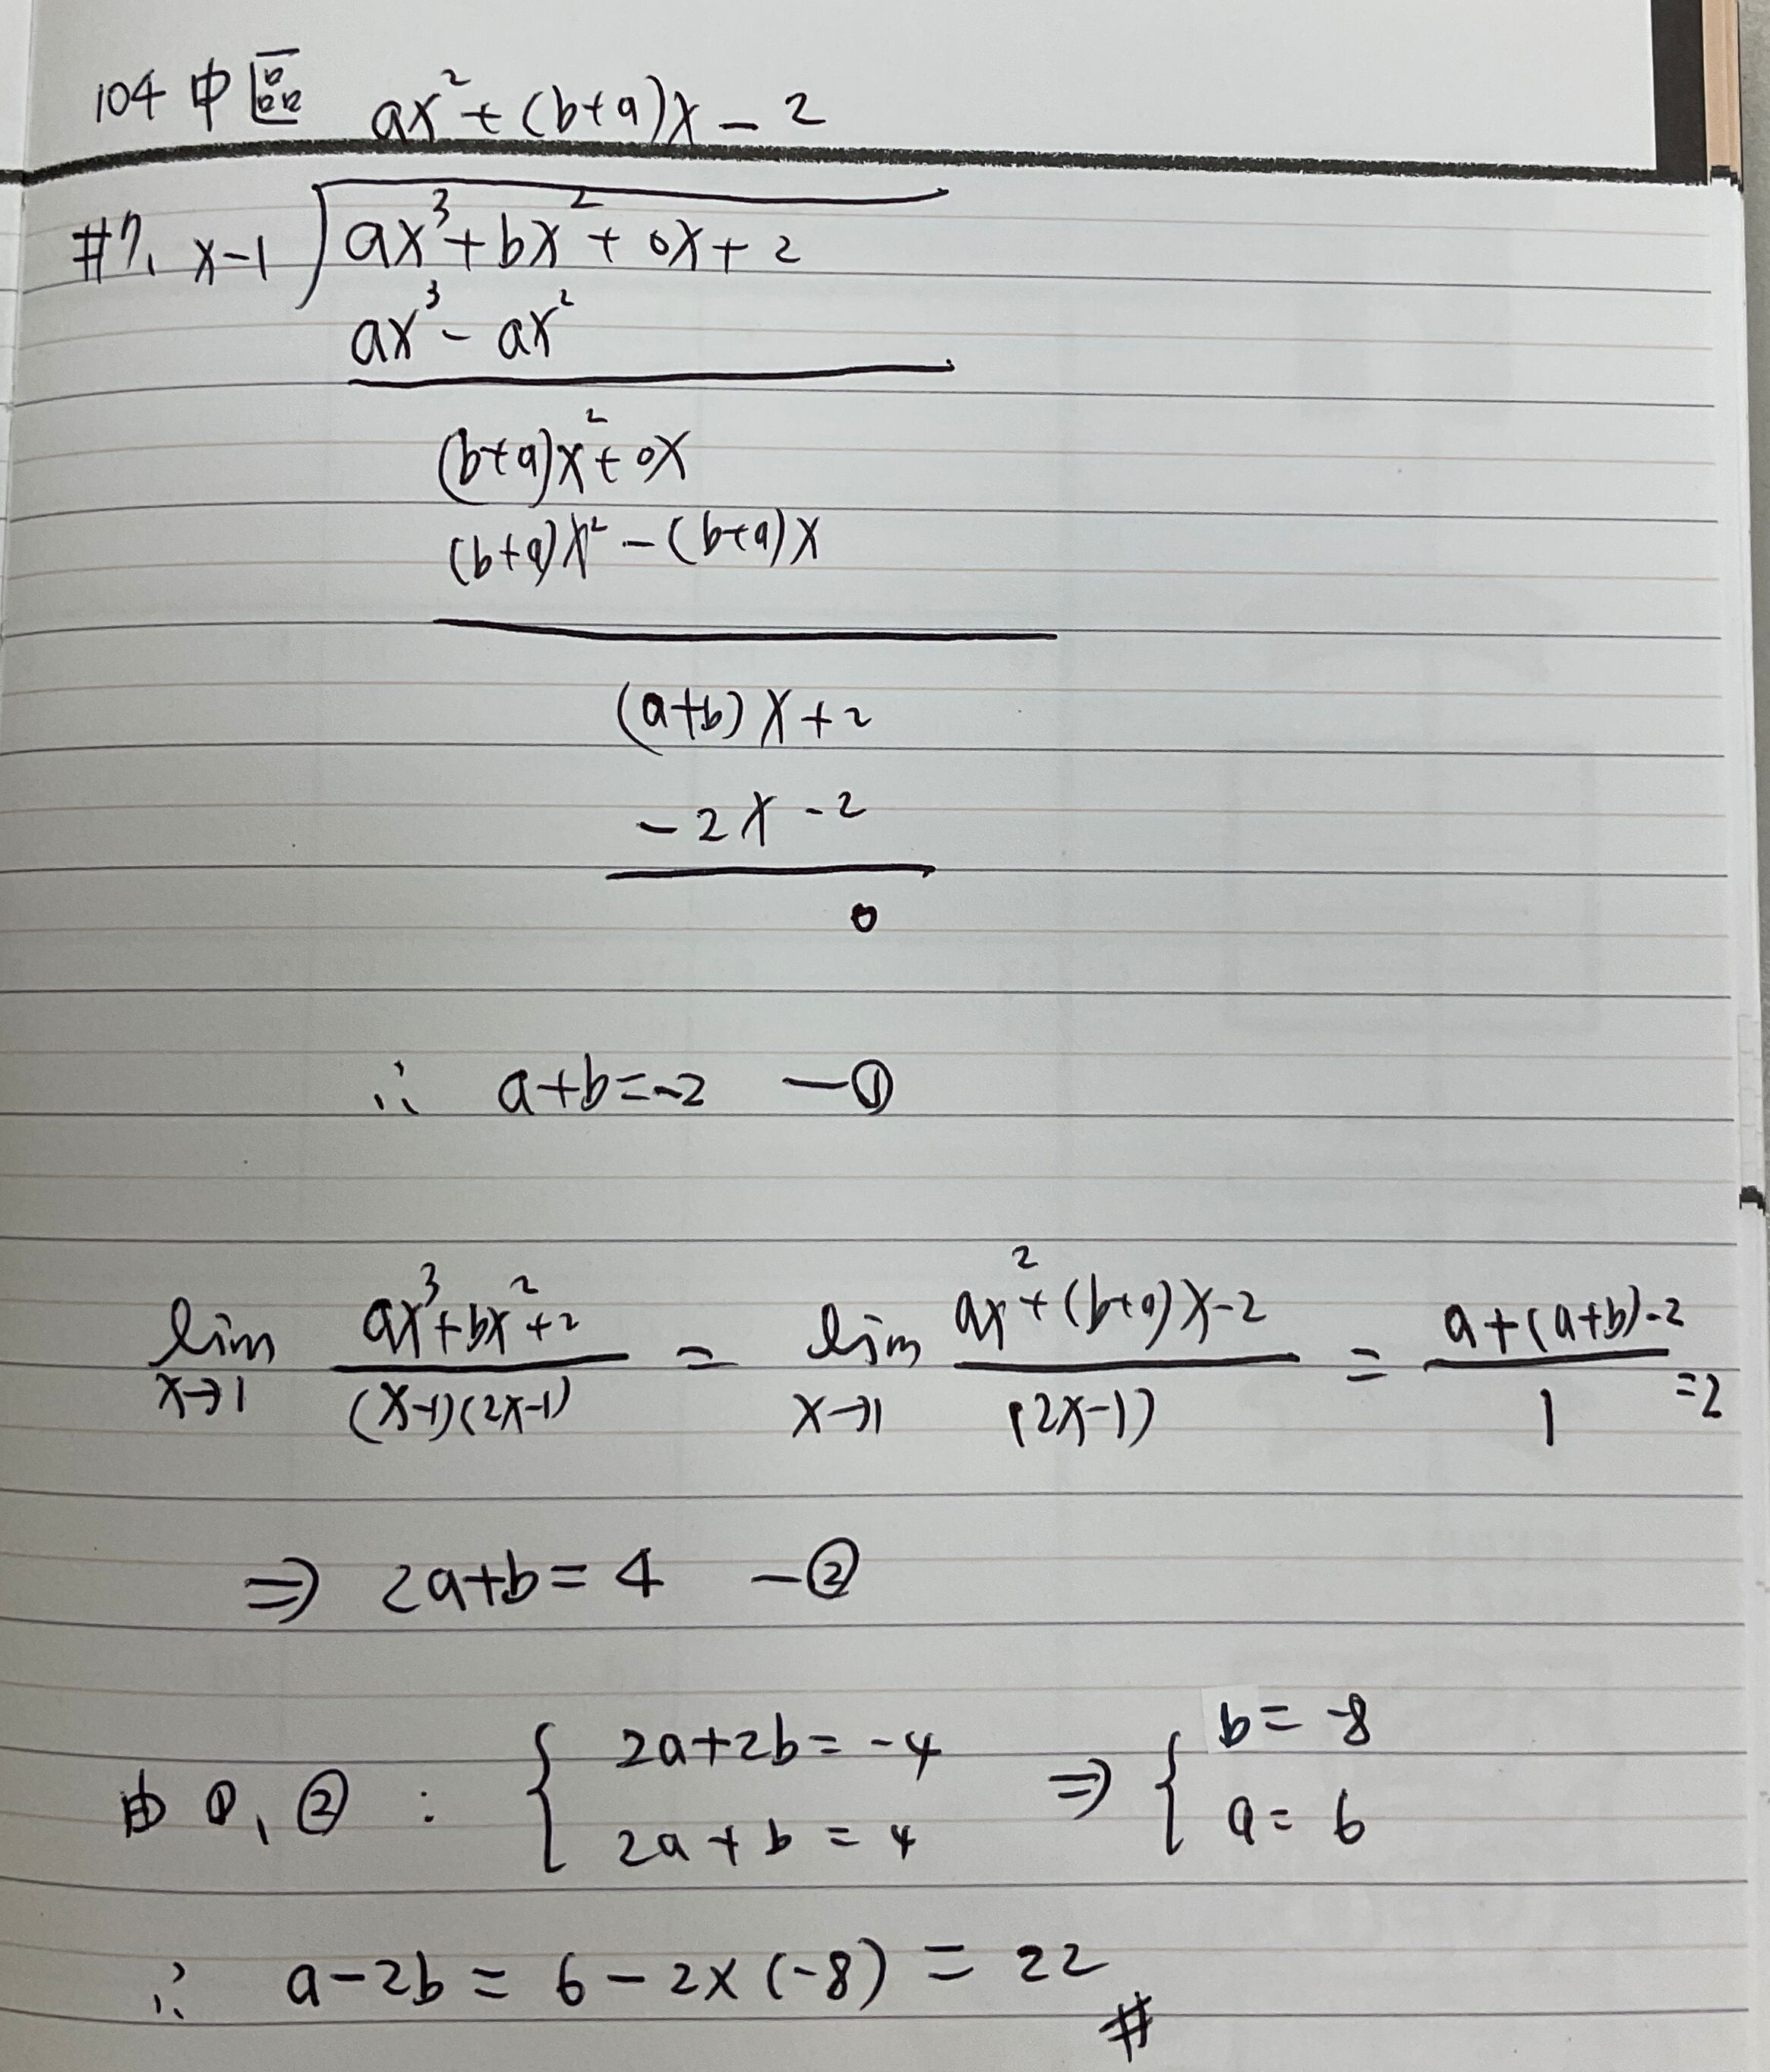 104 中區 ax²+(b+a)x-2
#7. x-1 ax³+bx²+0x+2
ax³-ax²
(b+a)x²+0x
(b+a)x²-(b+a)x
(a+b)x+2
-2x-2
0
∴ a+b=-2 —①
lim x→1 (ax³+bx²+2)/((x-1)(2x-1)) = lim x→1 (ax²+(b+a)x-2)/(2x-1) = (a+(a+b)-2)/1 =2
⇒ 2a+b=4 —②
由①、②: { 2a+2b=-4 ⇒ { b=-8
2a+b=4 a=6
∴ a-2b=6-2×(-8)=22 #